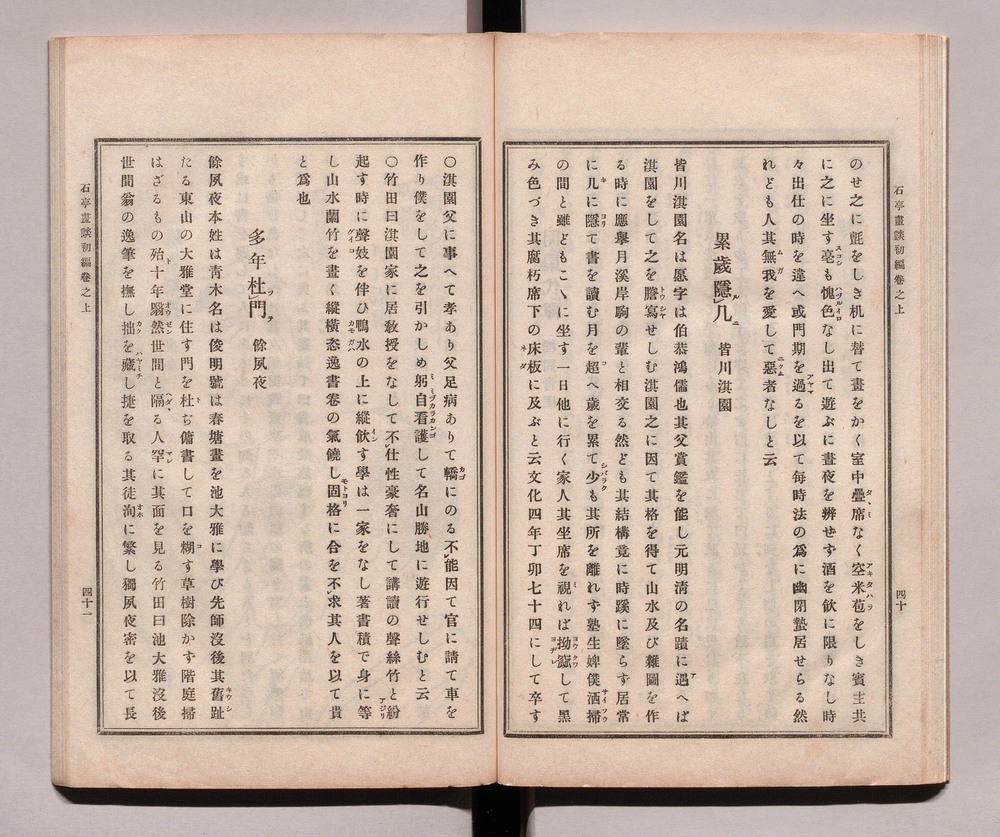 石亭畫談初編卷之上
四十
のせ之に氈をしき机に替て畫をかく室中疊席なく空米苞をしき賓主共
に之に坐す亳も愧色なし出て遊ぶに晝夜を辨せず酒を飲に限りなし時
々出仕の時を違へ或門期を過るを以て毎時法の爲に幽閉蟄居せらる然
れども人其無我を愛して惡者なしと云
累歲隱几 皆川淇園
皆川淇園名は愿字は伯恭鴻儒也其父賞鑑を能し元明淸の名蹟に遇へば
淇園をして之を謄寫せしむ淇園之に因て其格を得て山水及び雜圖を作
る時に應擧月溪岸駒の輩と相交る然ども其結構竟に時蹊に墜らす居常
に几に隱て書を讀む月を超へ歲を累て少も其所を離れす塾生婢僕洒掃
の間と雖どもこゝに坐す一日他に行く家人其坐席を視れば拗窳して黑
み色づき其腐朽席下の床板に及ぶと云文化四年丁卯七十四にして卒す
〇淇園父に事へて孝あり父足病ありて轎にのる不能因て官に請て車を
作り僕をして之を引かしめ躬自看護して名山勝地に遊行せしむと云
〇竹田曰淇園家に居敎授をなして不仕性豪奢にして講讀の聲絲竹と紛
起す時に聲妓を伴ひ鴨水の上に縱飲す學は一家をなし著書積で身に等
し山水蘭竹を畫く縱橫恣逸書卷の氣饒し固格に合を不求其人を以て貴
と爲也
多年杜門 餘夙夜
餘夙夜本姓は靑木名は俊明號は春塘畫を池大雅に學び先師沒後其舊趾
たる東山の大雅堂に住す門を杜ぢ傭書して口を糊す草樹除かず階庭掃
はざるもの殆十年翳然世間と隔る人罕に其面を見る竹田曰池大雅沒後
世間翁の逸筆を撫し拙を藏し捷を取る其徒洶に繁し獨夙夜密を以て長
石亭畫談初編卷之上
四十一